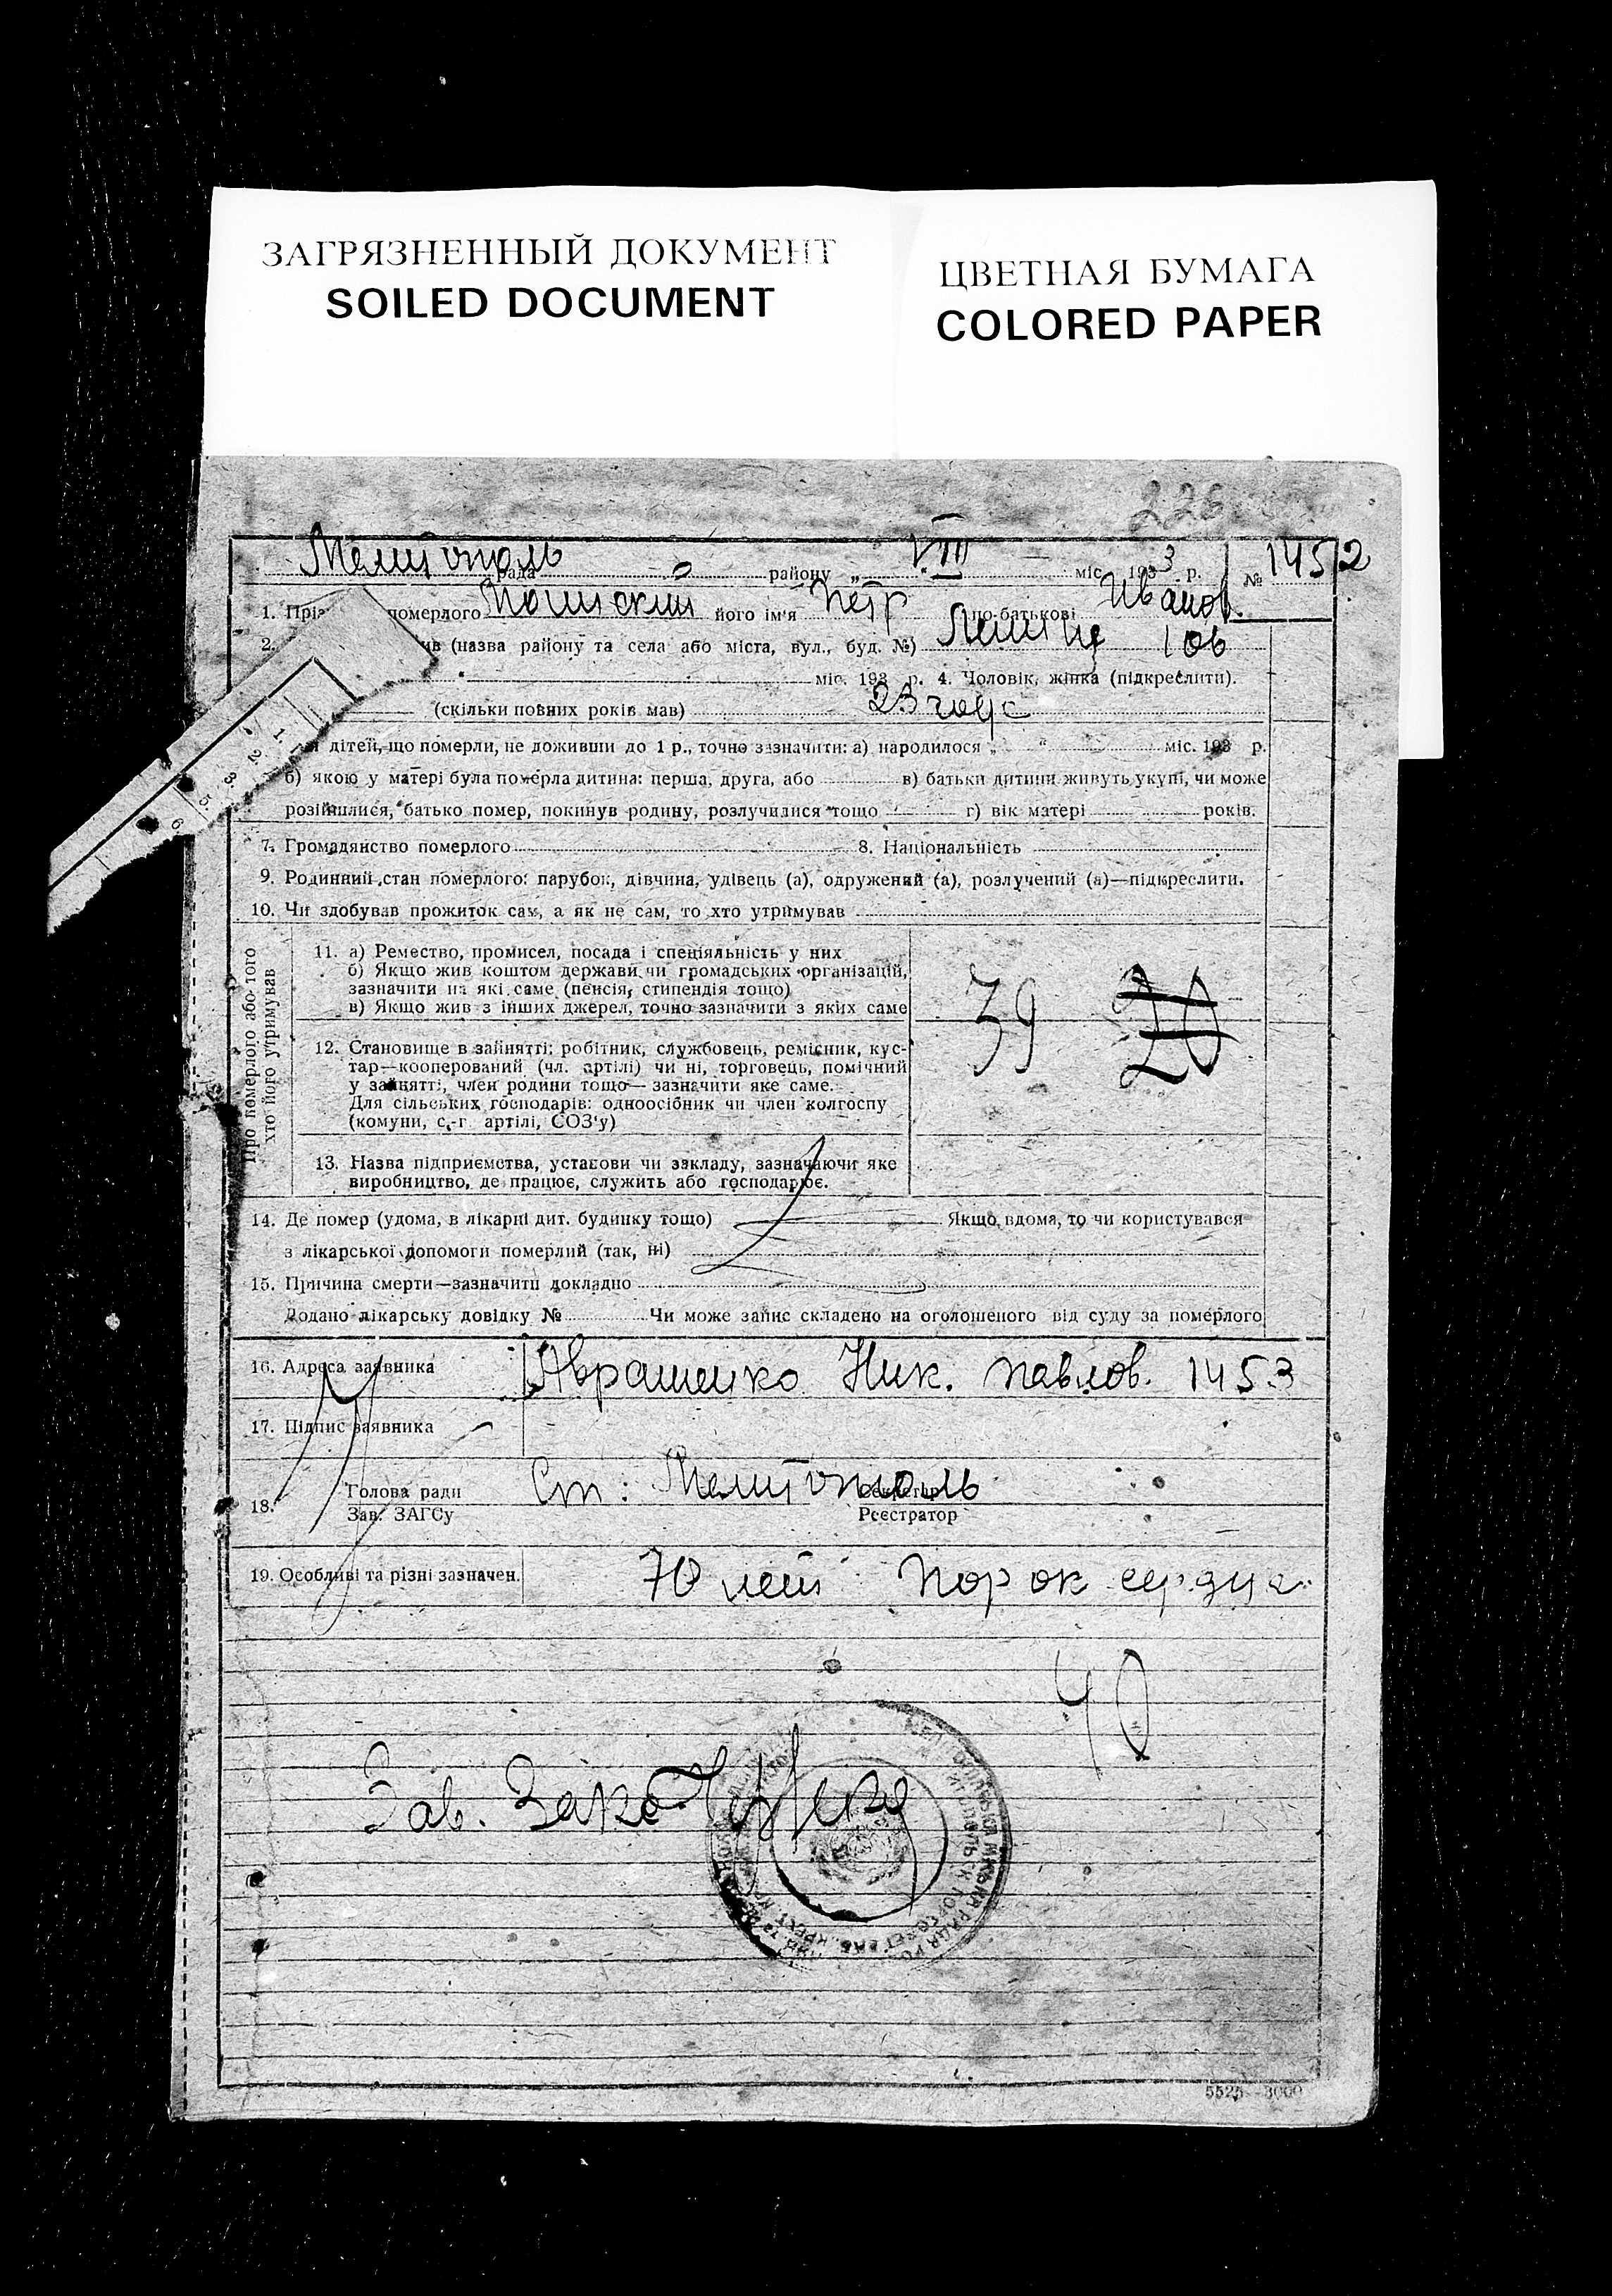 ЗАГРЯЗНЕННЫЙ ДОКУМЕНТ
SOILED DOCUMENT
ЦВЕТНАЯ БУМАГА
COLORED PAPER
226
Мелитополь рада району „ VIII міс. 1933 р. № 1452
1. Прі померлого його ім'я Петр по-батькові Иванов.
2. ив (назва району та села або міста, вул., буд. №) 106
міс. 193 р. 4. Чоловік, жінка (підкреслити).
(скільки повних років мав) 23 года
дітей, що померли, не доживши до 1 р., точно зазначити: а) народилося „ “ міс. 193 р.
б) якою у матері була померла дитина: перша, друга, або в) батьки дитини живуть укупі, чи може
розійшлися, батько помер, покинув родину, розлучилися тощо г) вік матері років.
7. Громадянство померлого 8. Національність
9. Родинний стан померлого: парубок, дівчина, удівець (а), одружений (а), розлучений (а)—підкреслити.
10. Чи здобував прожиток сам, а як не сам, то хто утримував
Про померлого або того
хто його утримував
11. а) Ремество, промисел, посада і спеціяльність у них
б) Якщо жив коштом держави чи громадських організацій,
зазначити на які саме (пенсія, стипендія тощо)
в) Якщо жив з інших джерел, точно зазначити з яких саме
39 20
12. Становище в зайнятті: робітник, службовець, ремісник, кус-
тар—кооперований (чл. артілі) чи ні, торговець, помічний
у зайнятті, член родини тощо— зазначити яке саме.
Для сільських господарів: одноосібник чи член колгоспу
(комуни, с.-г артілі, СОЗ'у)
13. Назва підприємства, установи чи закладу, зазначаючи яке
виробництво, де працює, служить або господарює.
14. Де помер (удома, в лікарні дит. будинку тощо) Якщо вдома, то чи користувався
з лікарської допомоги померлий (так, ні)
15. Причина смерти—зазначити докладно
Додано лікарську довідку № Чи може запис складено на оголошеного від суду за померлого
16. Адреса заявника Аврашенко Ник. Павлов. 1453
17. Підпис заявника
18. Голова ради Ст: Мелитополь Секретар
Зав. ЗАГСу Реєстратор
19. Особливі та різні зазначен. 70 лет Порок сердца
40
Зав.
5525—3000